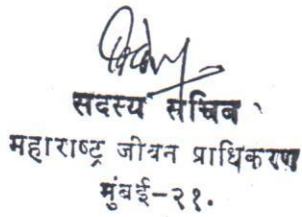 सदस्य सचिव
महाराष्ट्र जीवन प्राधिकरण
मुंबई-२१.